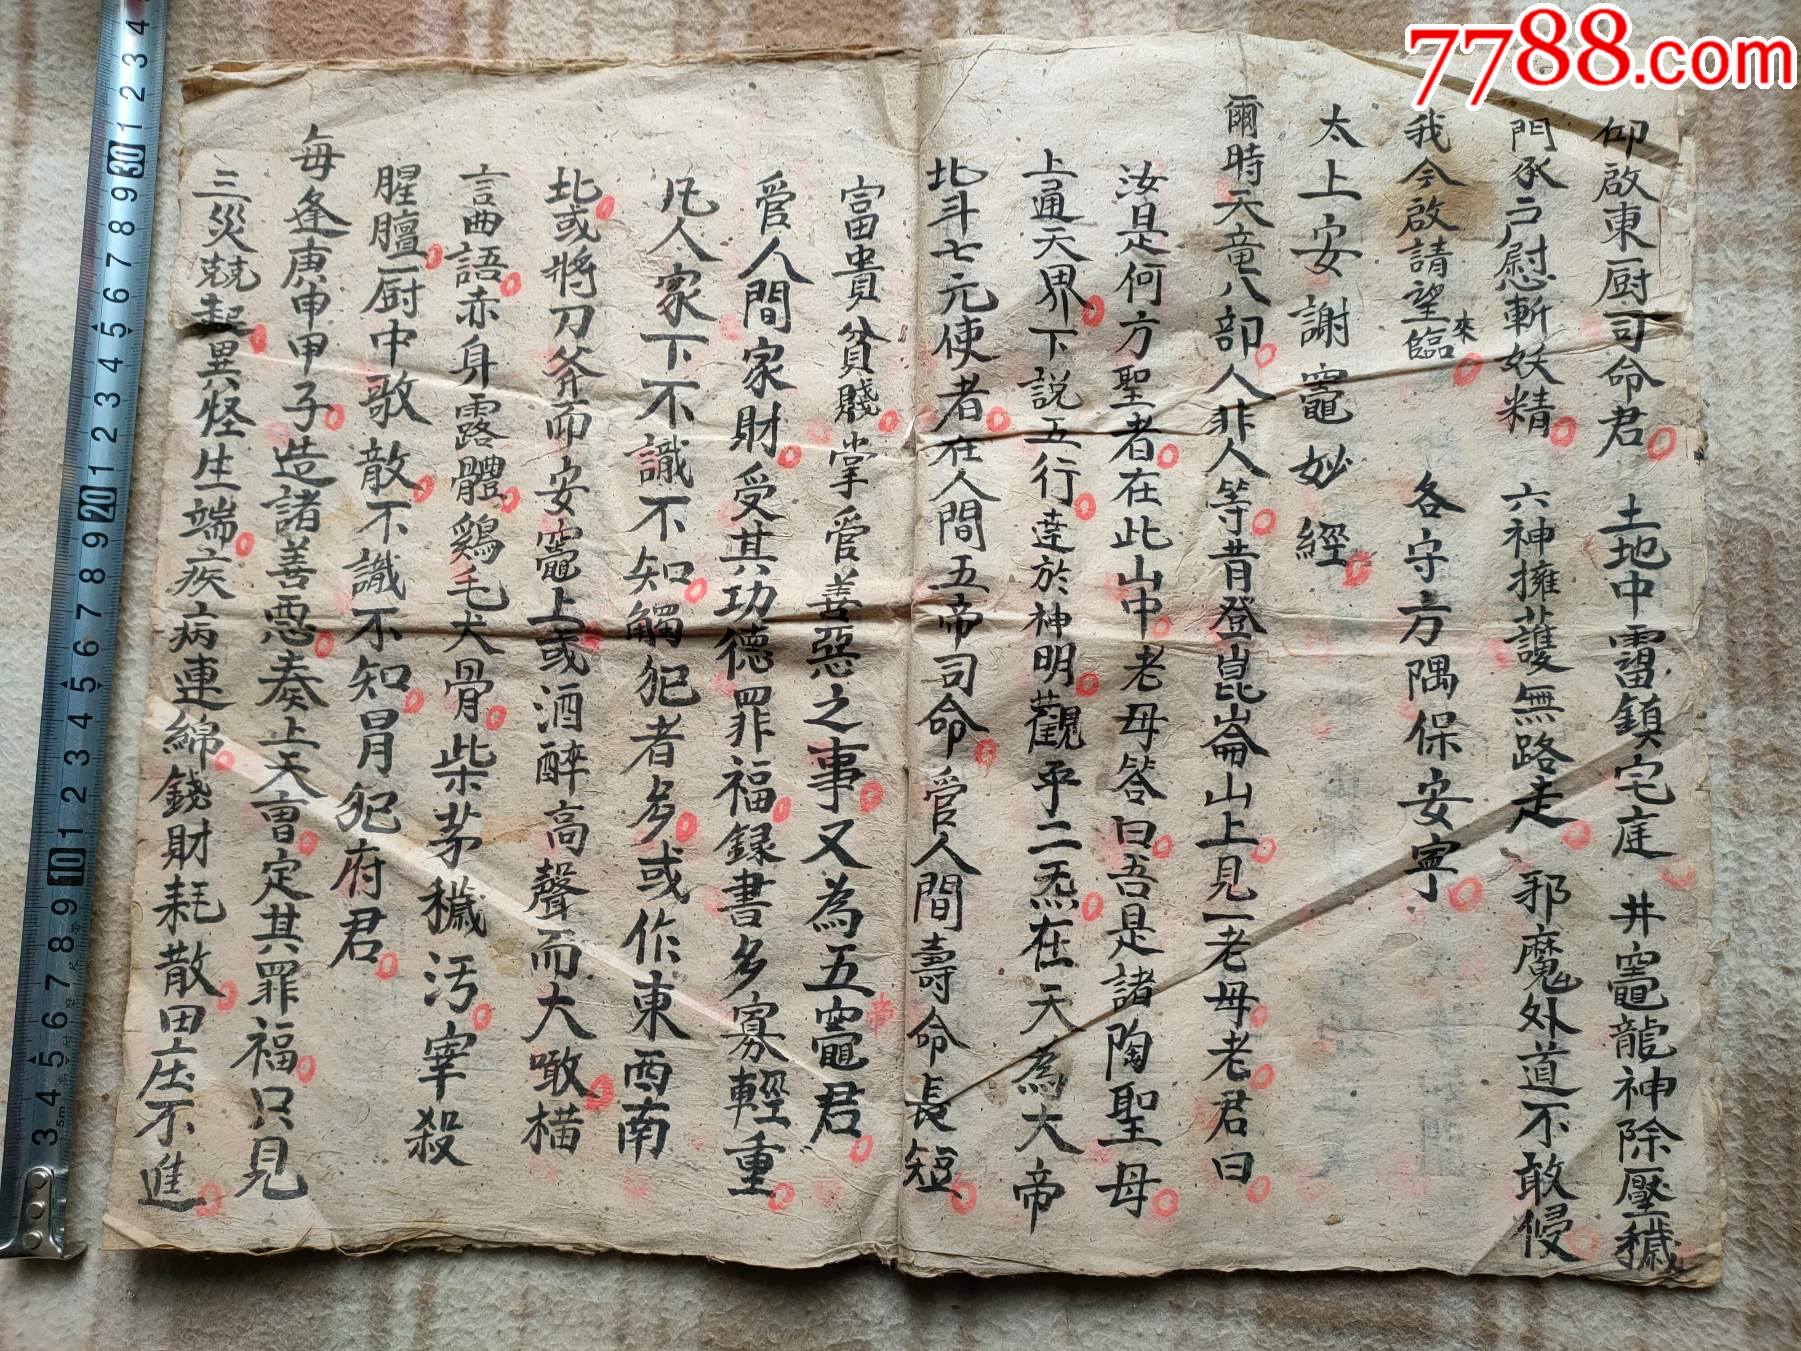 7788.com
仰啟東厨司命君 土地中霤鎮宅庭 井竈龍神除壓穢
門承户慰斬妖精 六神擁護無路走 邪魔外道不敢侵
我今啟請望來臨 各守方隅保安寧
太上安謝竈妙經
爾時天竜八部人非人等昔登崑崙山上見一老母老君曰
汝是何方聖者在此山中老母答曰吾是諸陶聖母
上通天界下説五行達於神明觀乎二炁在天為大帝
北斗七元使者在人間五帝司命管人間壽命長短
富貴貧賤掌管善惡之事又為五帝竈君
管人間家財受其功德罪福録書多寡輕重
凡人家下不識不知觸犯者多或作東西南
北或将刀斧而安竈上或酒醉高聲而大噉橫
言曲語赤身露體鷄毛犬骨柴茅穢污宰殺
腥膻厨中歌散不識不知冐犯府君
每逢庚申甲子造諸善惡奏上天曹定其罪福只見
三災兢起異怪生端疾病連綿錢財耗散田庄不進